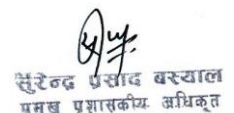 सुरेन्द्र प्रसाद बस्याल
प्रमुख प्रशासकीय अधिकृत